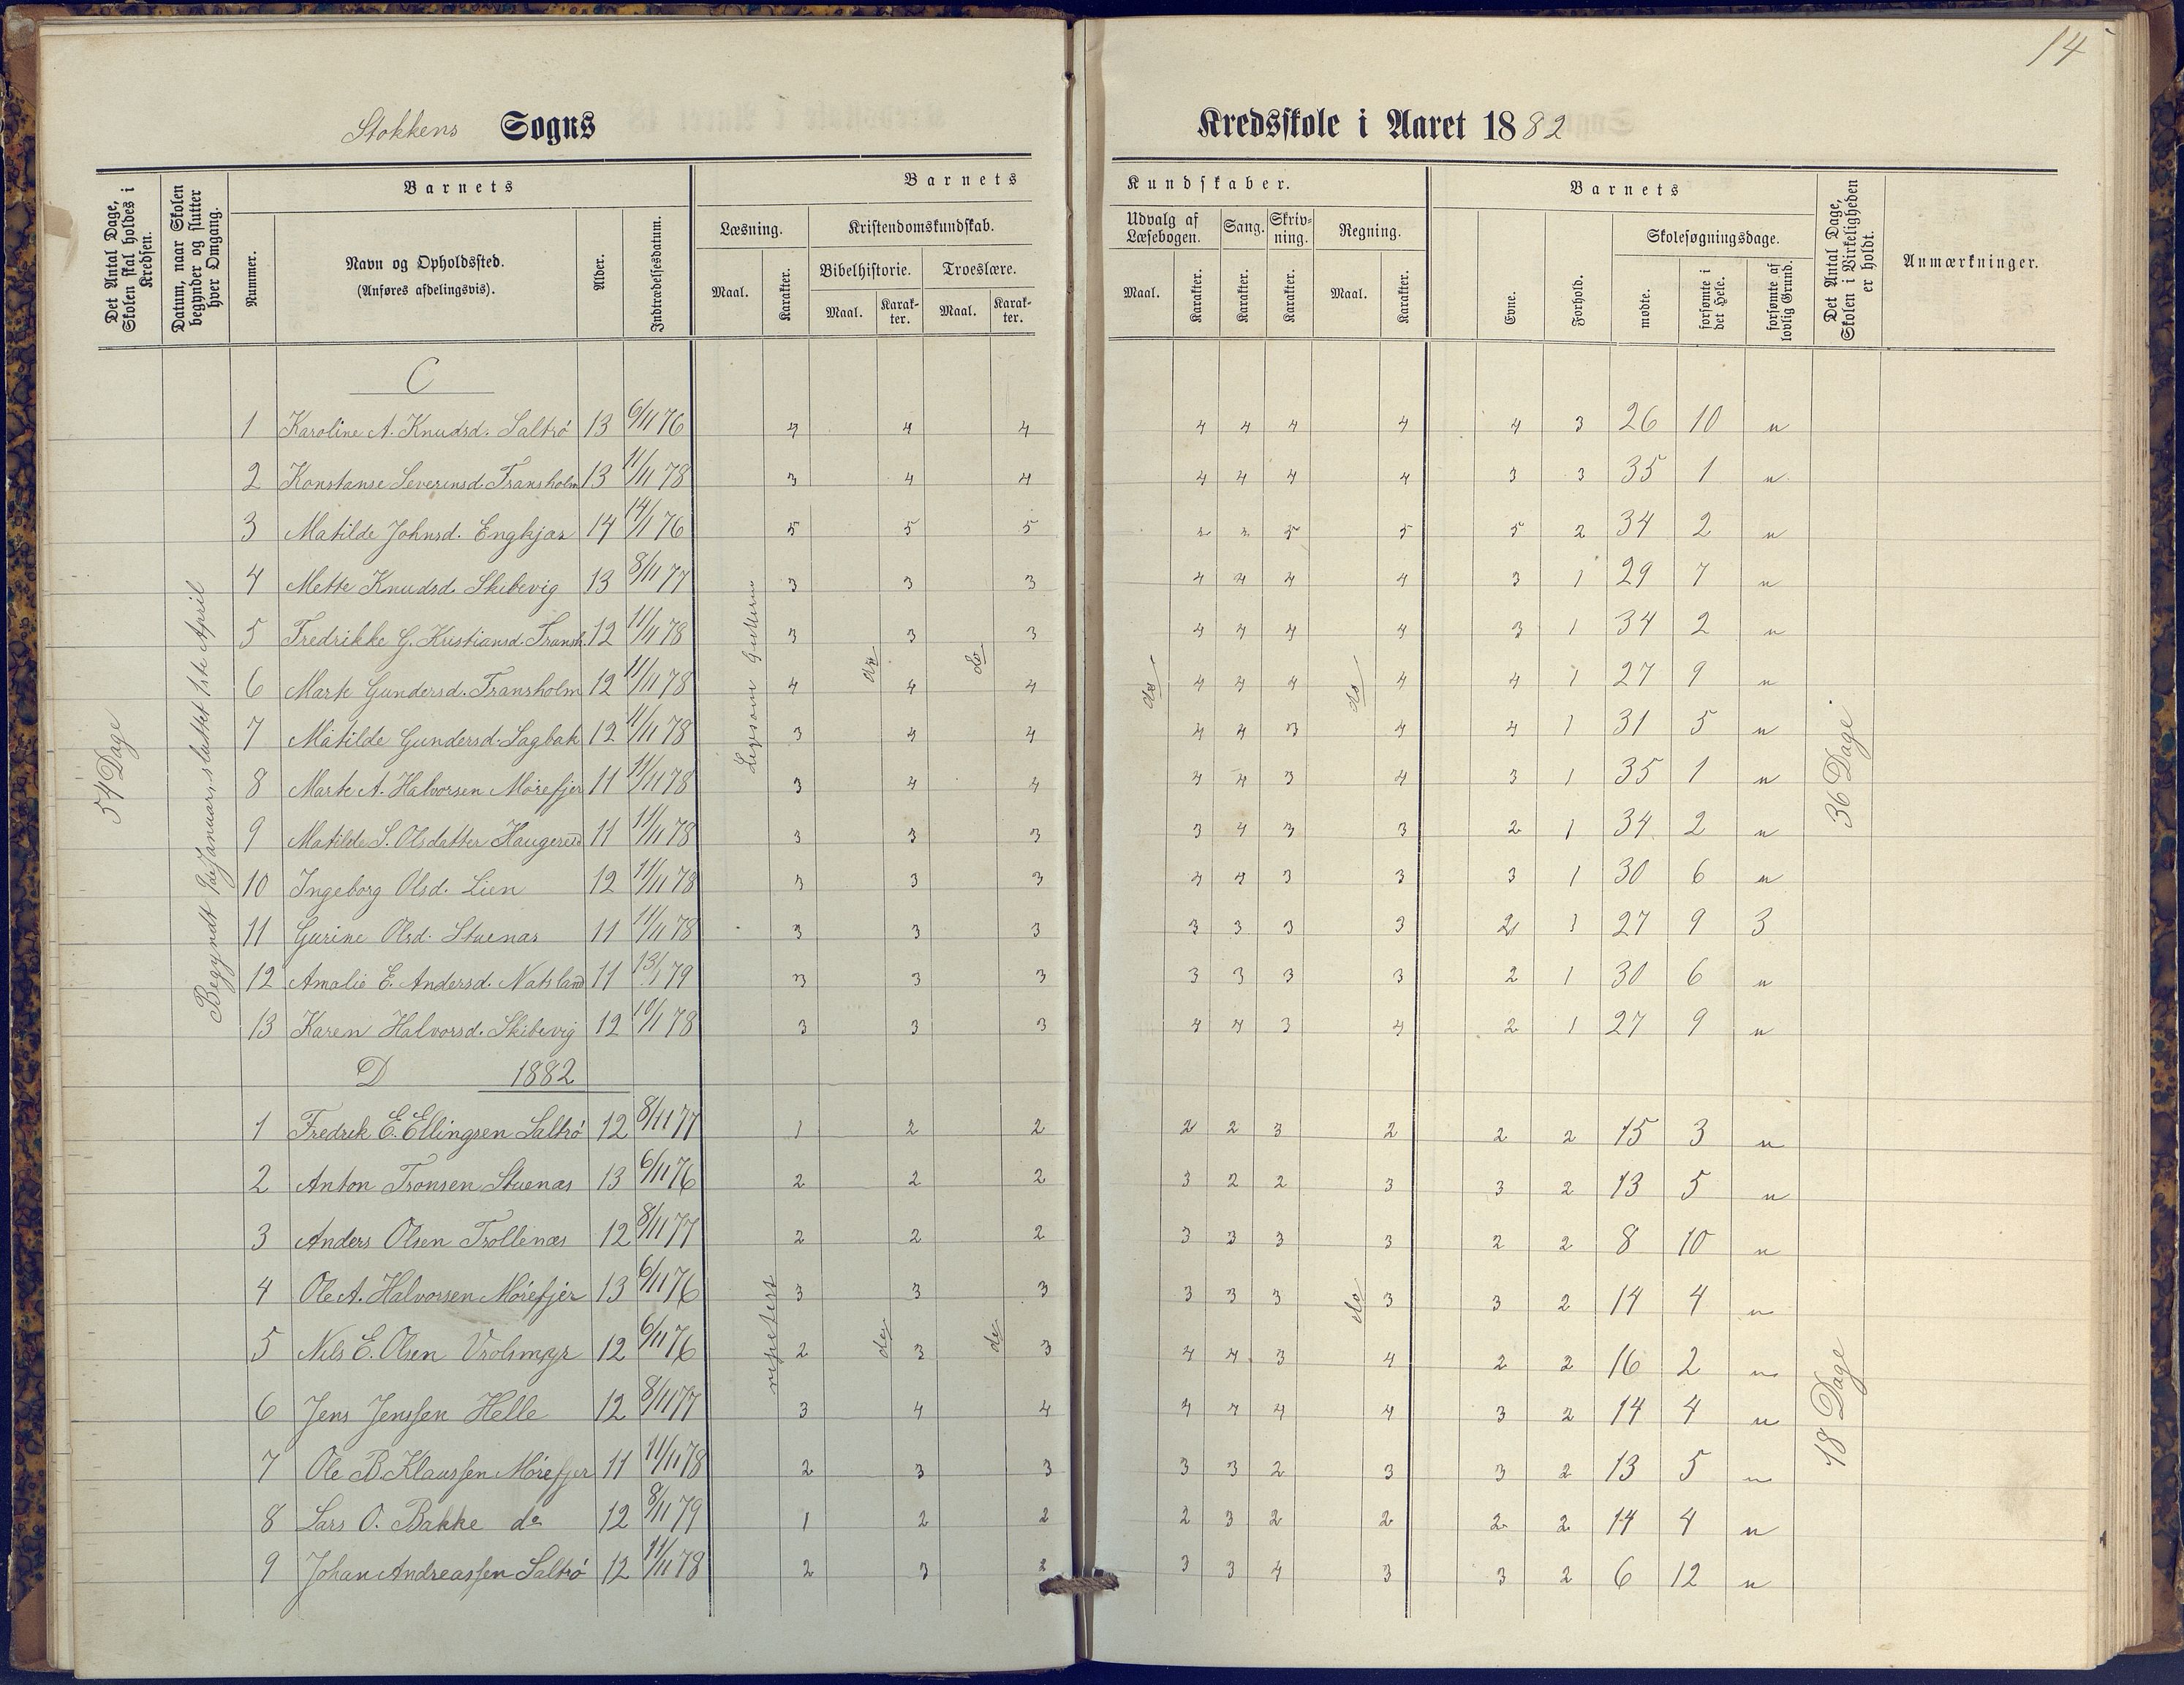 14
Stokkens Sogns Kredsskole i Aaret 1882
Det Antal Dage, Skolen skal holdes i Kredsen.
Datum, naar Skolen begynder og slutter hver Omgang.
Barnets
Nummer.
Navn og Opholdssted.
(Anføres afdelingsvis).
Alder.
Indtrædelsesdatum.
Barnets Kundskaber.
Læsning.
Maal. Karakter.
Kristendomskundskab.
Bibelhistorie. Troeslære.
Maal. Karakter. Maal. Karakter.
Udvalg af Læsebogen.
Maal. Karakter.
Sang. Karakter.
Skrivning. Karakter.
Regning.
Maal. Karakter.
Barnets
Evne. Forhold.
Skolesøgningsdage.
mødte. forsømte i det Hele. forsømte af lovlig Grund.
Det Antal Dage, Skolen i Virkeligheden er holdt.
Anmærkninger.
54 Dage
Januar, sluttet 1ste April
do do do do
36 Dage
C
1 Karoline A. Knudsd. Saltrö 13 6/11 76 4 4 4 4 4 4 4 4 3 26 10 "
2 Konstanse Severinsd. Fransholm 13 11/11 78 3 4 4 4 4 4 4 3 3 35 1 "
3 Matilde Johnsd. Engkjær 14 14/1 76 5 5 5 5 5 5 2 34 2 "
4 Mette Knudsd. Skibevig 13 8/11 77 3 3 3 4 4 4 4 3 1 29 7 "
5 Fredrikke G. Kristiansd. Fransh. 12 11/11 78 3 3 3 4 4 4 4 3 1 34 2 "
6 Marte Gundersd. Fransholm 12 11/11 78 4 4 4 4 4 4 4 4 1 27 9 "
7 Matilde Gundersd. Sagbak 12 11/11 78 3 4 4 4 4 3 4 4 1 31 5 "
8 Marte A. Halvorsen Mörefjer 11 11/11 78 3 4 4 4 4 3 4 3 1 35 1 "
9 Matilde S. Olsdatter 11 11/11 78 3 3 3 3 4 3 3 2 1 34 2 "
10 Ingeborg Olsd. Lien 12 11/11 78 3 3 3 4 4 3 3 3 1 30 6 "
11 Gurine Olsd. Stuenæs 11 11/11 78 3 3 3 3 3 3 3 2 1 27 9 3
12 Amalie E. Andersd. Natsland 11 13/1 79 3 3 3 3 3 3 3 2 1 30 6 "
13 Karen Halvorsd. Skibevig 12 10/1 78 3 3 3 4 4 3 4 2 1 27 9 "
D 1882
1 Fredrik E. Ellingsen Saltrö 12 8/11 77 1 2 2 2 2 3 2 2 2 15 3 "
2 Anton Tronsen Stuenæs 13 6/11 76 2 2 2 3 2 2 3 3 2 13 5 "
3 Anders Olsen Trollenæs 12 8/11 77 2 2 2 3 3 3 3 2 2 8 10 "
4 Ole A. Halvorsen Mörefjer 13 6/11 76 3 3 3 3 3 3 3 3 2 14 4 "
5 Nils E. Olsen Vrolsmyr 12 6/11 76 2 3 3 4 4 3 4 2 2 16 2 "
6 Jens Jenssen Helle 12 8/11 77 3 4 4 4 4 4 4 3 2 14 4 "
7 Ole B. Klaussen Mörefjer 11 11/11 78 2 3 3 3 3 2 3 3 2 13 5 "
8 Lars O. Bakke do 12 8/11 79 1 2 2 2 3 2 2 2 2 14 4 "
9 Johan Andreassen Saltrö 12 11/11 78 2 3 2 3 3 4 3 3 2 6 12 "
repetert do do do
18 Dage